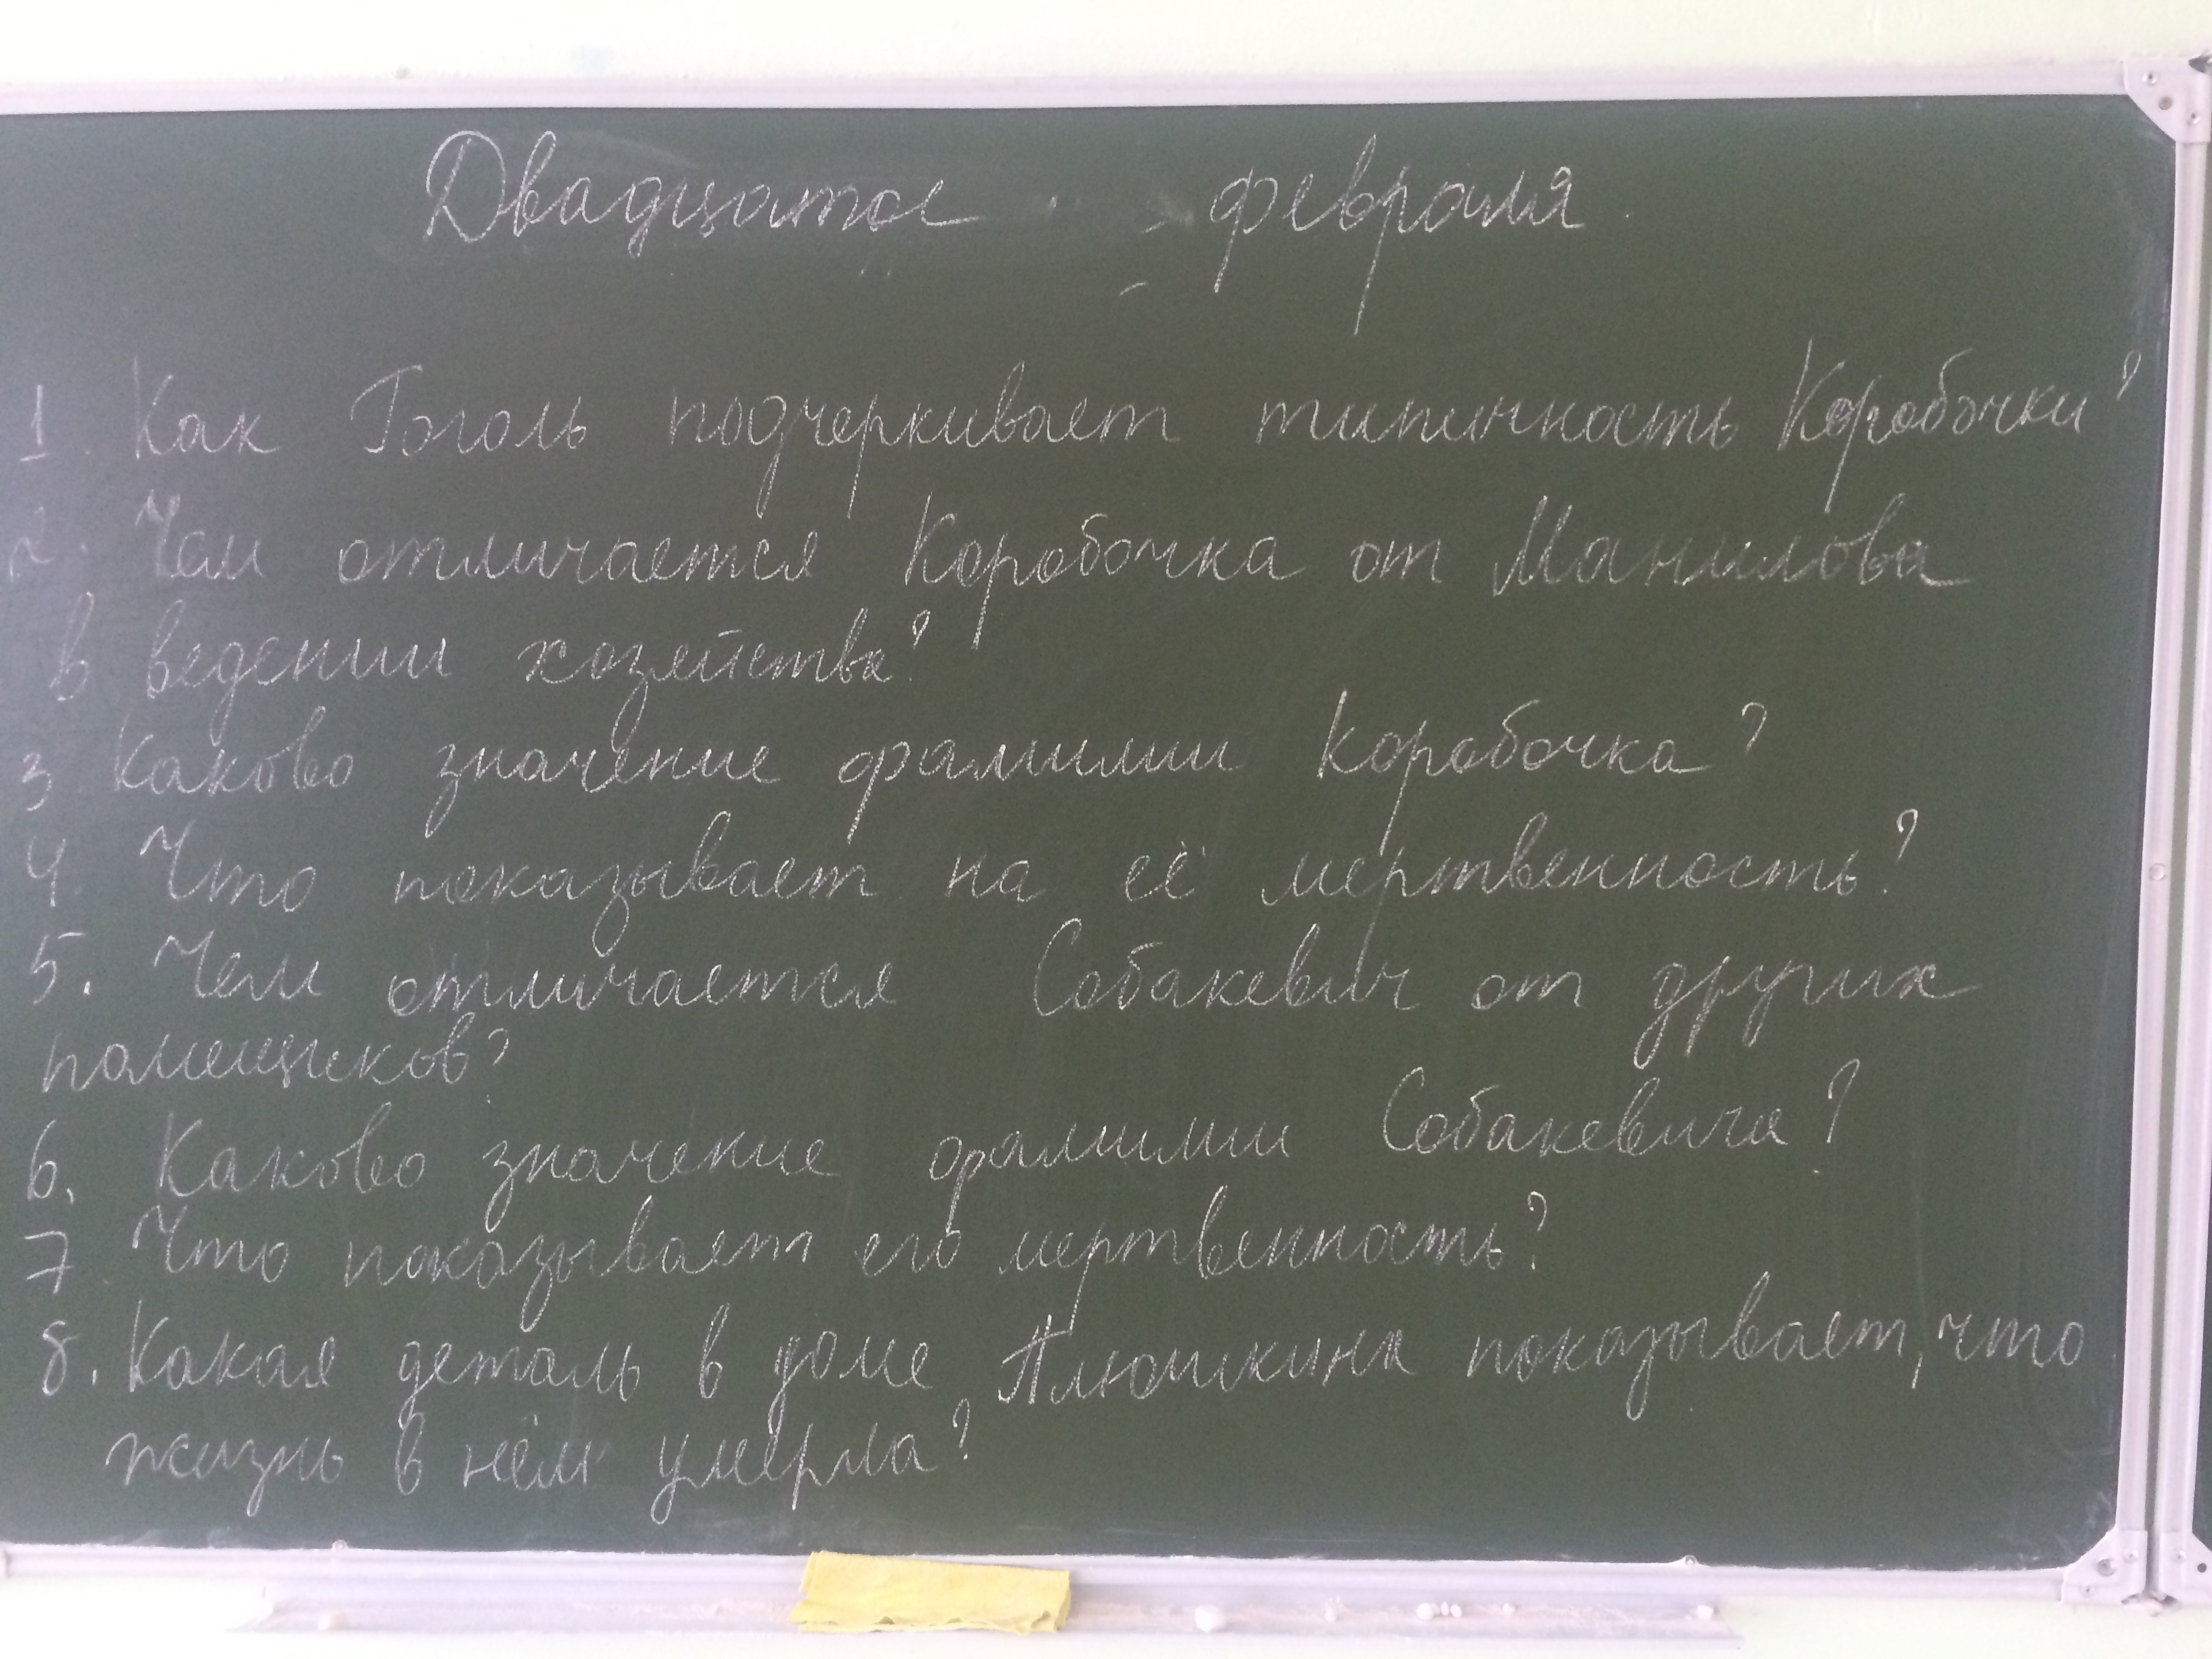 Двадцатое февраля
1. Как Гоголь подчеркивает типичность Коробочки?
2. Чем отличается Коробочка от Манилова
в ведении хозяйства?
3 Каково значение фамилии Коробочка?
4. Что показывает на её мертвенность?
5. Чем отличается Собакевич от других
помещиков?
6. Каково значение фамилии Собакевича?
7 Что показывает его мертвенность?
8. Какая деталь в доме Плюшкина показывает, что
жизнь в нём умерла?